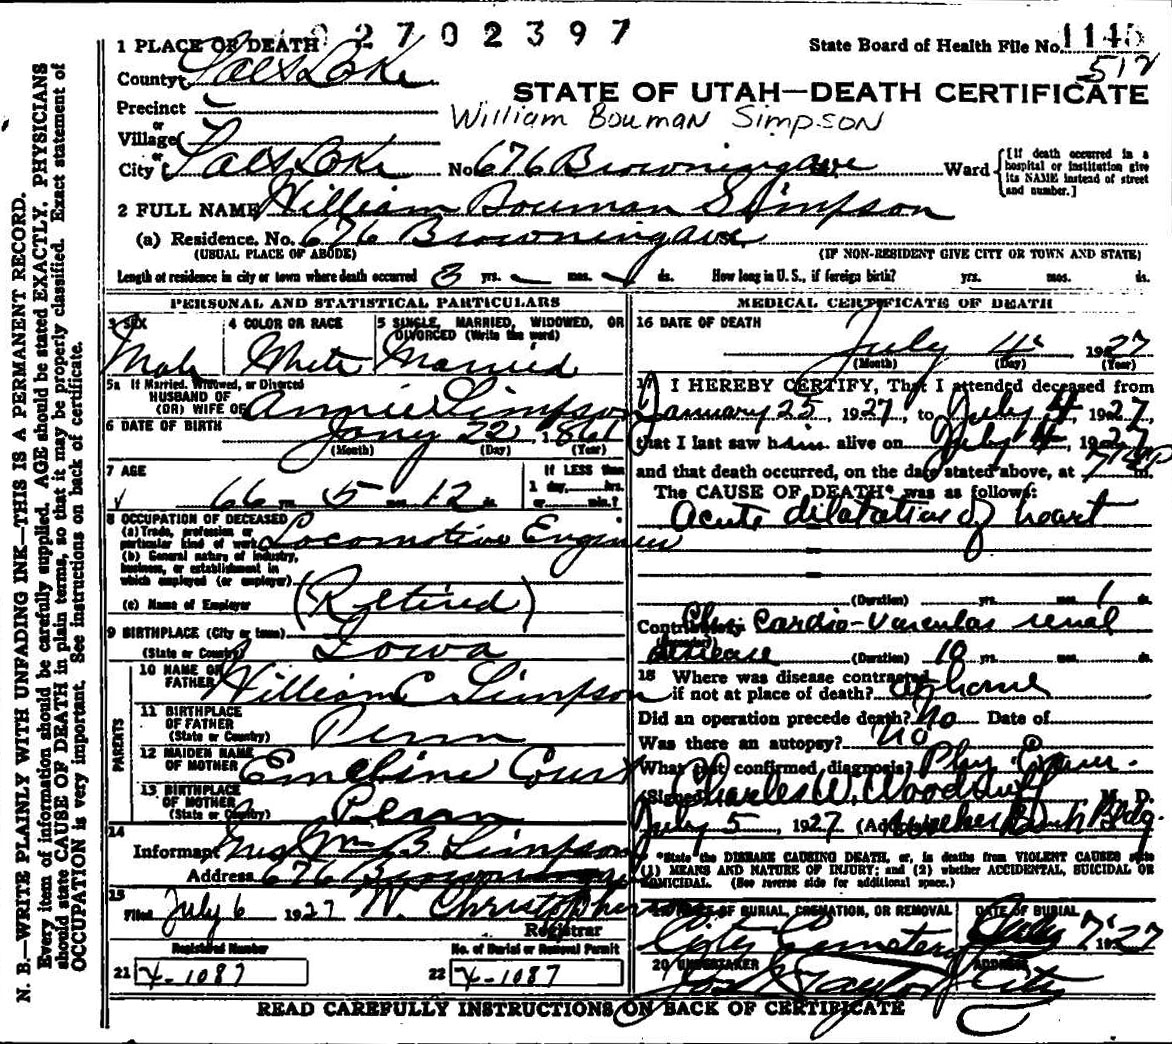 2702397
1 PLACE OF DEATH
State Board of Health File No. 1145
512
County Salt Lake
STATE OF UTAH—DEATH CERTIFICATE
Precinct
William Bouman Simpson
or
Village
or
City Salt Lake No. 676 Browning ave Ward
[If death occurred in a hospital or institution give its NAME instead of street and number.]
2 FULL NAME William Bouman Simpson
(a) Residence. No. 676 Browning ave
(USUAL PLACE OF ABODE) (IF NON-RESIDENT GIVE CITY OR TOWN AND STATE)
Length of residence in city or town where death occurred 3 yrs. mos. ds. How long in U. S., if foreign birth? yrs. mos. ds.
PERSONAL AND STATISTICAL PARTICULARS
3 SEX
Male
4 COLOR OR RACE
White
5 SINGLE, MARRIED, WIDOWED, OR DIVORCED (Write the word)
Married
5a If Married, Widowed, or Divorced
HUSBAND OF
(OR) WIFE OF Annie Simpson
6 DATE OF BIRTH Jany 22 1861
(Month) (Day) (Year)
7 AGE
If LESS than
1 day, hrs.
or min.?
66 yrs. 5 mos. 12 ds.
8 OCCUPATION OF DECEASED
(a) Trade, profession or
particular kind of work Locomotive Engineer
(b) General nature of industry,
business, or establishment in
which employed (or employer)
(c) Name of Employer (Retired)
9 BIRTHPLACE (City or town)
(State or Country) Iowa
PARENTS
10 NAME OF
FATHER William C Simpson
11 BIRTHPLACE
OF FATHER
(State or Country) Penn
12 MAIDEN NAME
OF MOTHER Emeline
13 BIRTHPLACE
OF MOTHER
(State or Country) Penn
14
Informant Mrs Wm B Simpson
Address 676 Browning ave
15
Filed July 6 1927 W. Christopherson
Registrar
Registered Number No. of Burial or Removal Permit
21 X-1087 22 X-1087
MEDICAL CERTIFICATE OF DEATH
16 DATE OF DEATH
July 4 1927
(Month) (Day) (Year)
17 I HEREBY CERTIFY, That I attended deceased from
January 25, 1927, to July 4, 1927,
that I last saw him alive on July 4, 1927
and that death occurred, on the date stated above, at m.
The CAUSE OF DEATH* was as follows:
Acute dilatation of heart
(Duration) yrs. mos. 1 ds.
Contributory Chr. Cardio-vascular renal
disease (Duration) 10 yrs. mos. ds.
18 Where was disease contracted
if not at place of death? at home
Did an operation precede death? No Date of
Was there an autopsy? No
What test confirmed diagnosis? Phy. Exam.
(Signed) Charles W. Woodruff M. D.
July 5, 1927 (Address) Walker Bank Bldg.
*State the DISEASE CAUSING DEATH, or, in deaths from VIOLENT CAUSES state
(1) MEANS AND NATURE OF INJURY; and (2) whether ACCIDENTAL, SUICIDAL OR
HOMICIDAL. (See reverse side for additional space.)
19 PLACE OF BURIAL, CREMATION, OR REMOVAL
City Cemetery
DATE OF BURIAL
July 7 1927
20 UNDERTAKER
Taylor
ADDRESS
City
READ CAREFULLY INSTRUCTIONS ON BACK OF CERTIFICATE
N. B.—WRITE PLAINLY WITH UNFADING INK—THIS IS A PERMANENT RECORD.
Every item of information should be carefully supplied. AGE should be stated EXACTLY. PHYSICIANS
should state CAUSE OF DEATH in plain terms, so that it may be properly classified. Exact statement of
OCCUPATION is very important. See instructions on back of certificate.